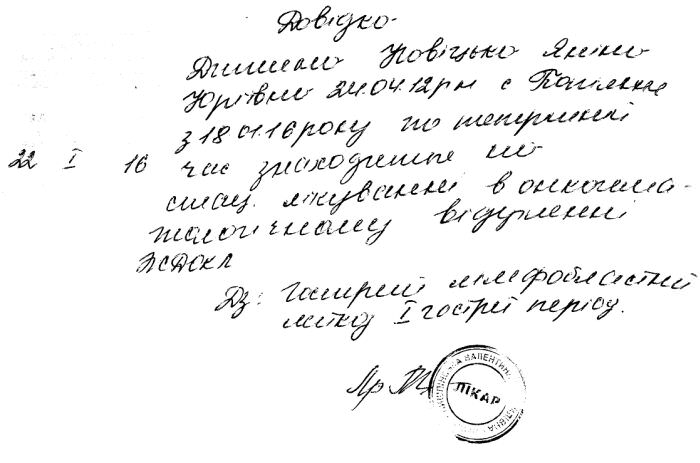 Довідка
Дитина Новіцька Яніна
Юріївна 24.04.12рн с
з 18 01.16 року по теперішній
22 I 16 час знаходиться на
стац. лікуванні в онкогема-
тологічному відділенні
ЖОДКЛ
Дз: Гострий лімфобластний
лейкоз I гострий період.
ЛІКАР
ВАЛЕНТИНА